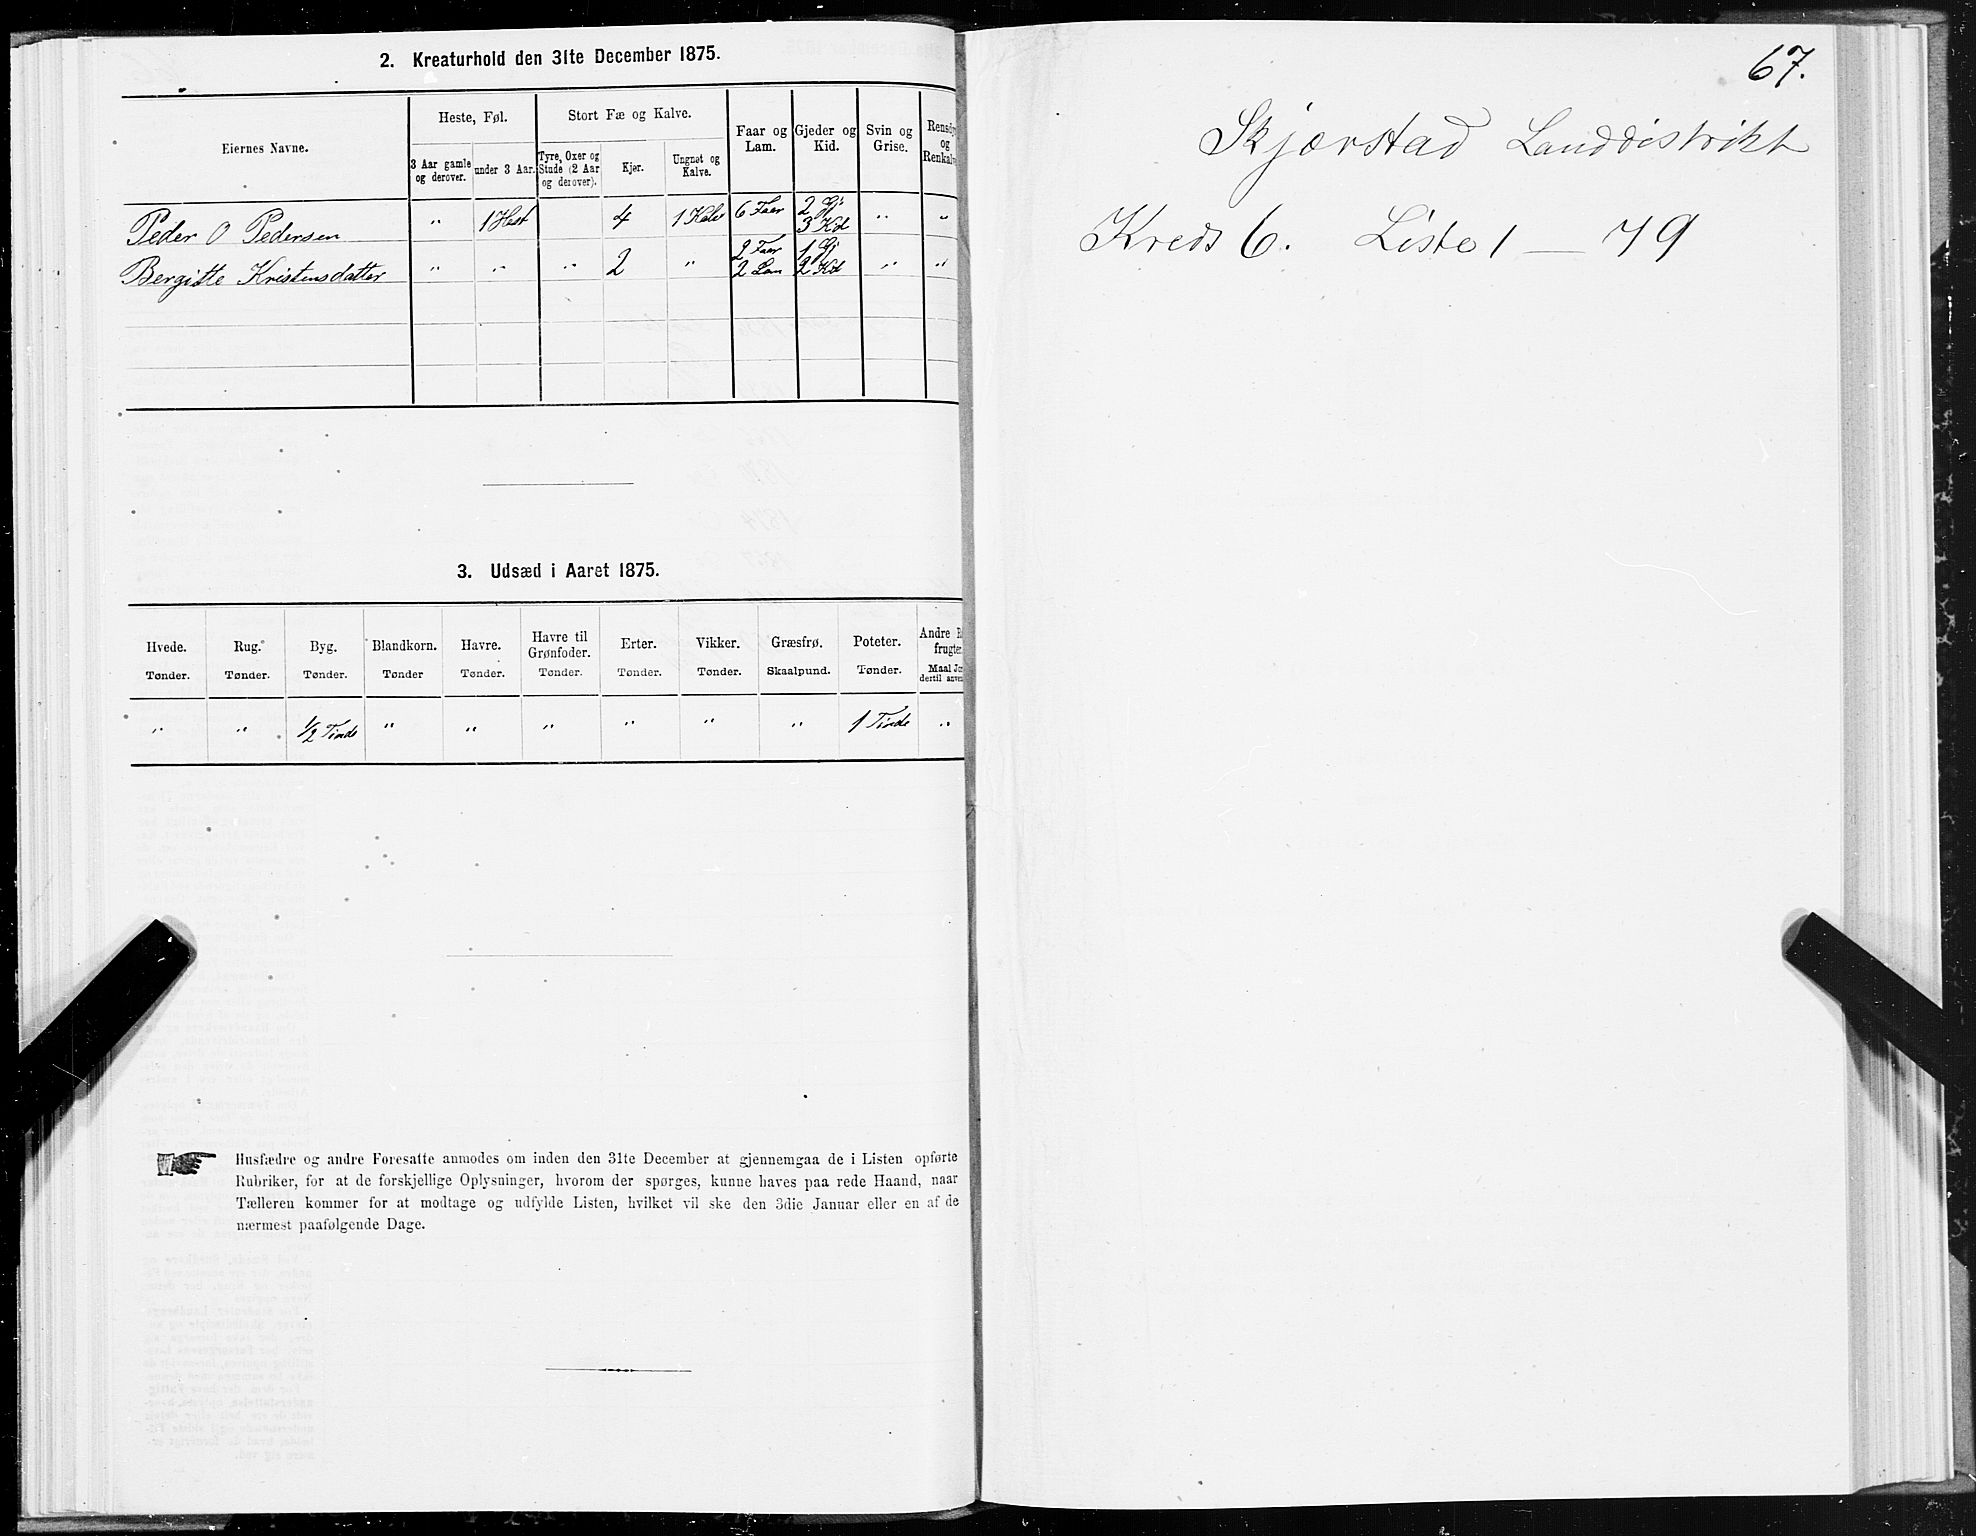 2. Kreaturhold den 31te December 1875.
Eiernes Navne. Heste, Føl. Stort Fæ og Kalve. Faar og Lam. Gjeder og Kid. Svin og Grise. Rensdyr og Renkalve
3 Aar gamle og derover. under 3 Aar. Tyre, Oxer og Stude (2 Aar og derover). Kjer. Ungnøt og Kalve.
Peder O Pedersen " 1 Hest 4 1 Kalv 6 Faar 2 Gj 3 Kid " "
Bergitte Kristensdatter " " " 2 " 2 Faar 2 Lam 1 Gj 2 Kid " "
3. Udsæd i Aaret 1875.
Hvede. Rug. Byg. Blandkorn. Havre. Havre til Grønfoder. Erter. Vikker. Græsfrø. Poteter. Andre
Tønder. Tønder. Tønder. Tønder Tønder. Tønder. Tønder. Tønder. Skaalpund. Tønder. Maal
" " 1/2 Tønde " " " " " " 1 Tønde "
Husfædre og andre Foresatte anmodes om inden den 31te December at gjennemgaa de i Listen opførte
Rubriker, for at de forskjellige Oplysninger, hvorom der spørges, kunne haves paa rede Haand, naar
Tælleren kommer for at modtage og udfylde Listen, hvilket vil ske den 3die Januar eller en af de
nærmest paafølgende Dage.
67.
Skjærstad Landdistrikt
Kreds 6. Liste 1 — 79